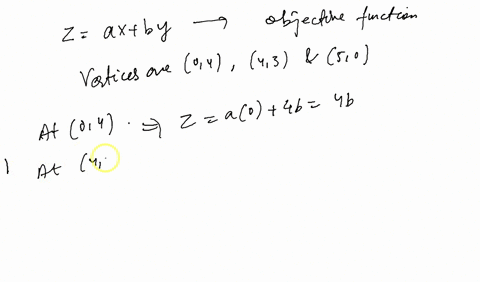 Z = ax+by → objective function
Vertices are (0,4), (4,3) & (5,0)
At (0,4) . ⇒ Z = a(0) + 4b = 4b
1 At (4,